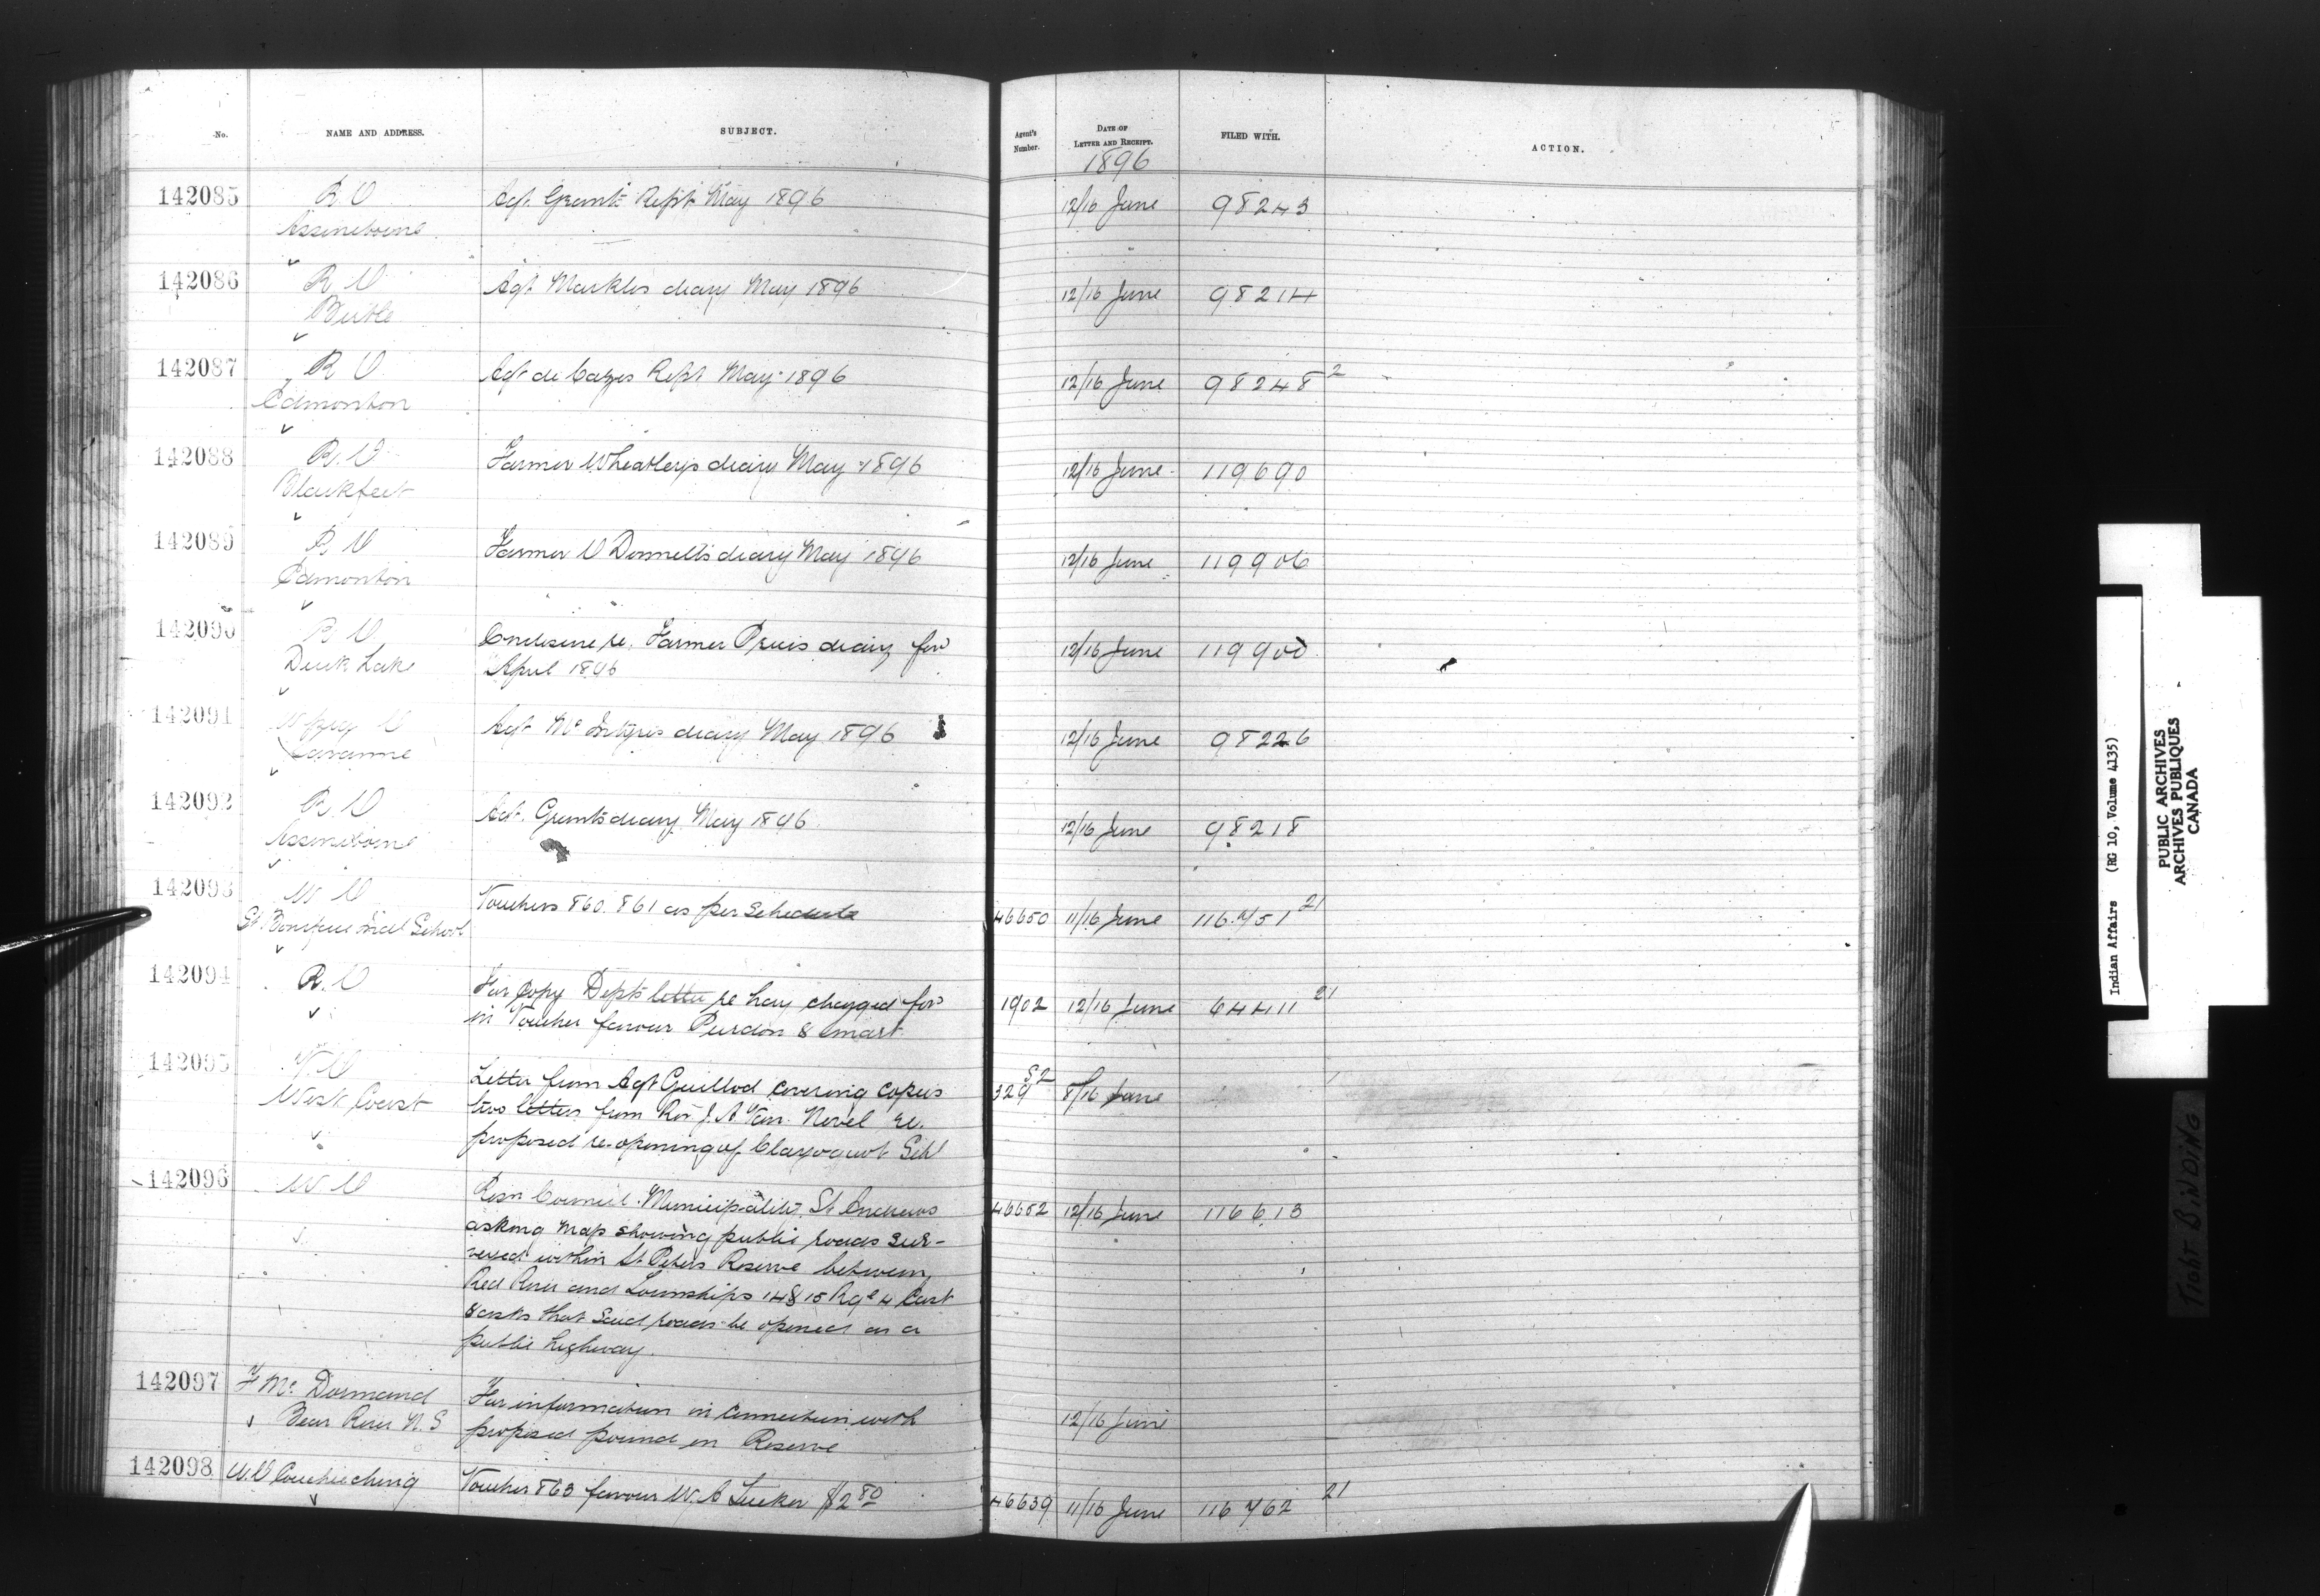 No. NAME AND ADDRESS. SUBJECT. Agent's Number. DATE OF LETTER AND RECEIPT. FILED WITH. ACTION.
1896
142085 R.O Agt. Grants Rept May 1896 12/16 June 98243
Assineboine
142086 R O Agt Markles diary May 1896 12/16 June 98214
Birtle
142087 R O Agt de Cazes Rept May 1896 12/16 June 98248 2
Edmonton
142088 R.O Farmer Wheatleys diary May 1896 12/16 June 119690
Blackfeet
142089 R O Farmer O'Donnells diary May 1896 12/16 June 119906
Edmonton
142090 R O Enclosure re. Farmer Prices diary for 12/16 June 119900
Duck Lake April 1896
142091 Agt McIntyres diary May 1896 12/16 June 98226
Savanne
142092 R.O Agt. Grants diary May 1896 12/16 June 98218
Assineboine
142093 W O Vouchers 860. 861 as per Schedule 46650 11/16 June 116751 21
St. Boniface Indl School
142094 R.O For Copy Depts letter re hay charged for 1902 12/16 June 64411 21
in Voucher favour Purdon & Smart
142095 V O Letter from Agt Guillod covering copies 329 52 8/16 June
West Coast two letters from Rev J. A Van. Nevel re.
proposed re-opening of Clayoquot Schl
142096 W O Resn Council. Municipality St Andrews 46652 12/16 June 116613
asking Map showing public roads sur-
veyed within St. Peters Reserve between
Red River and Townships 14 & 15 Rge 4 East
& asks that said roads be opened as a
public highway.
142097 F McDormand For information in connection with 12/16 June
Bear River N.S proposed pound on Reserve
142098 W.O Couchiching Voucher 863 favour W. C Tucker $2 80 46639 11/16 June 116762 21
Indian Affairs (RG 10, Volume 4135)
PUBLIC ARCHIVES
ARCHIVES PUBLIQUES
CANADA
Tight BINDING